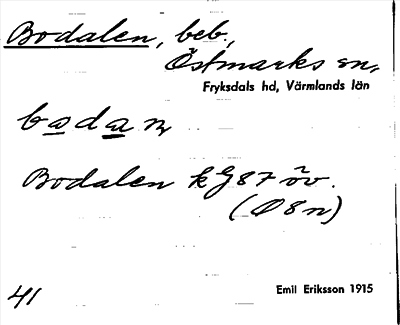 Bodalen, beb.,
Östmarks sn,
Fryksdals hd, Värmlands län
badan
Bodalen kG87 öv.
(Ø8n)
41
Emil Eriksson 1915